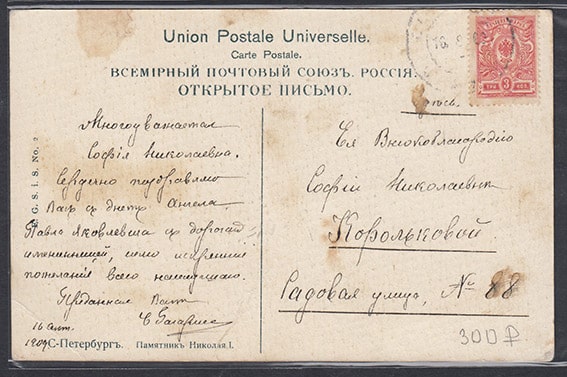 Union Postale Universelle.
Carte Postale.
ВСЕМІРНЫЙ ПОЧТОВЫЙ СОЮЗЪ. РОССІЯ.
ОТКРЫТОЕ ПИСЬМО.
Многоуважаемая
Софія Николаевна.
Сердечно поздравляю
Васъ съ днемъ Ангела
Павла Яковлевича съ дорогой
имениницей, шлю искреннія
пожеланія всего наилучшаго.
Преданная Вамъ
16
1909
С-Петербургъ. Памятникъ Николая I.
G. S. I. S. No.
3
Здѣсь.
Ея Высокоблагородію
Софіи Николаевнѣ
Корольковой
Садовая улица, № 88
300 ₽